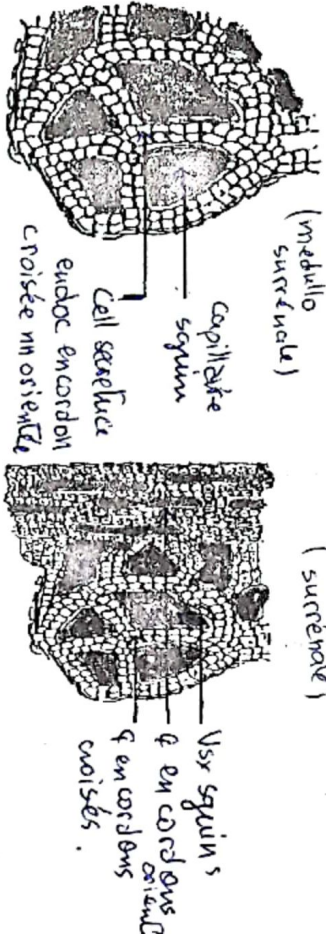 (médullo
surrénale)
Capillaire
sguin
Cell secretrice
endoc en cordon
croisée nn orientée
(surrénale)
Vsx sguins
¢ en cordons
orient
¢ en cordons
croisés.